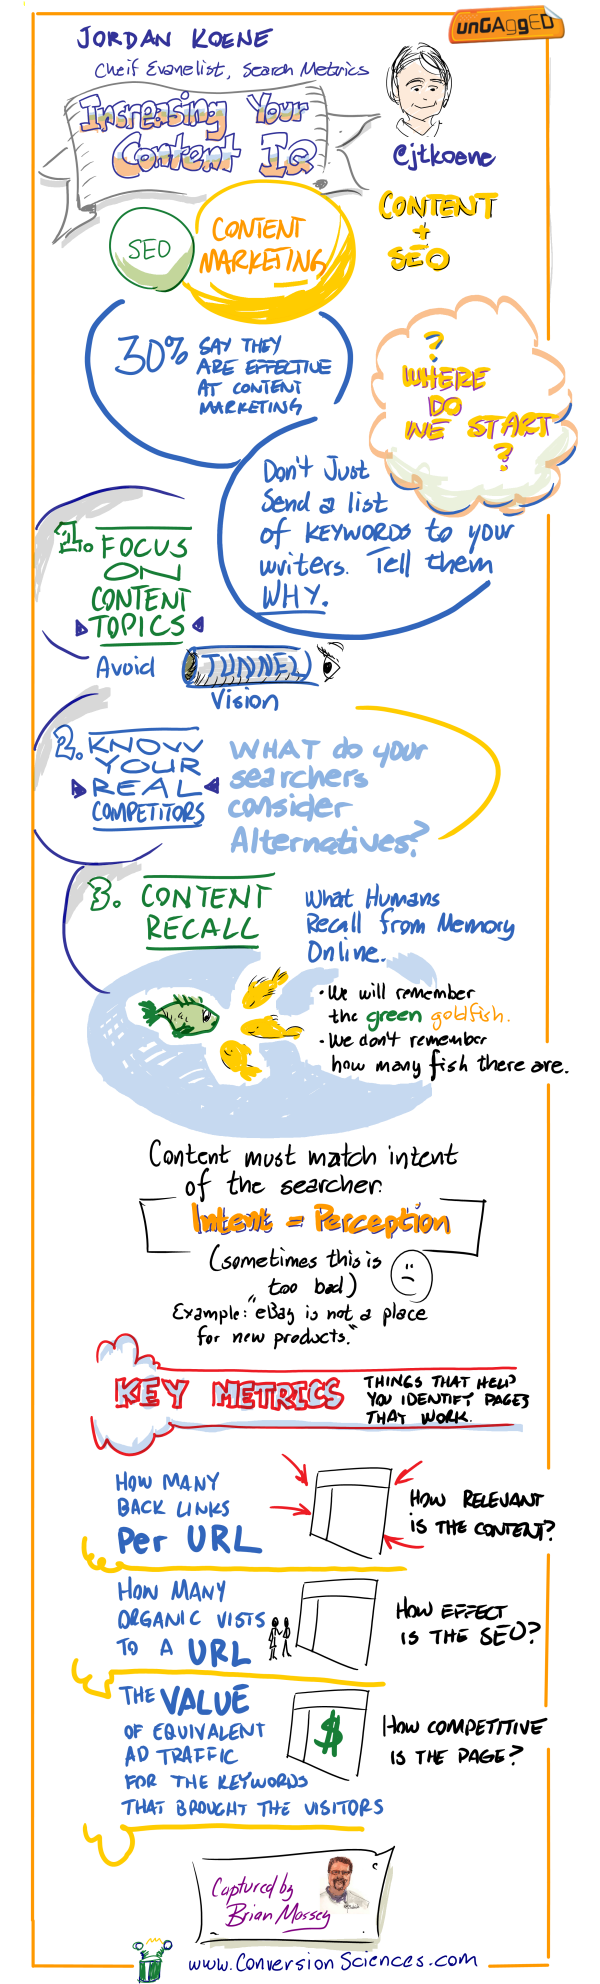 unGAggED
JORDAN KOENE
Cheif Evanelist, Search Metrics
Increasing Your
Content IQ
@jtkoene
SEO
CONTENT
MARKETING
CONTENT
+
SEO
30% SAY THEY
ARE EFFECTIVE
AT CONTENT
MARKETING
?
WHERE
DO
WE START
?
Don't Just
Send a list
of KEYWORDS to your
writers. Tell them
WHY.
1. FOCUS
ON
CONTENT
TOPICS
Avoid TUNNEL
Vision
2. KNOW
YOUR
REAL
COMPETITORS
WHAT do your
searchers
consider
Alternatives?
3. CONTENT
RECALL
What Humans
Recall from Memory
Online.
• We will remember
the green goldfish.
• We don't remember
how many fish there are.
Content must match intent
of the searcher.
Intent = Perception
(sometimes this is
too bad)
Example: "eBay is not a place
for new products."
KEY METRICS
THINGS THAT HELP
YOU IDENTIFY PAGES
THAT WORK.
HOW MANY
BACK LINKS
Per URL
HOW RELEVANT
IS THE CONTENT?
HOW MANY
ORGANIC VISTS
TO A URL
HOW EFFECT
IS THE SEO?
THE VALUE
OF EQUIVALENT
AD TRAFFIC
FOR THE KEYWORDS
THAT BROUGHT THE VISITORS
$
HOW COMPETITIVE
IS THE PAGE?
Captured by
Brian Massey
www.ConversionSciences.com